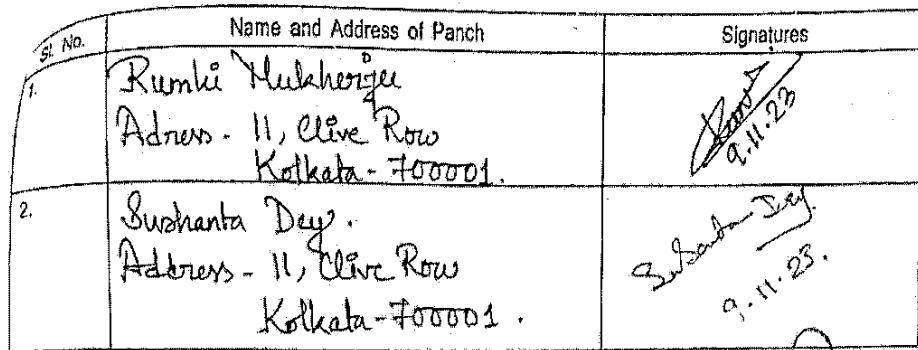 Sl. No. Name and Address of Panch Signatures
1. Rumki Mukherjee
Adress - 11, Clive Row
Kolkata - 700001.
9.11.23
2. Sushanta Dey.
Address - 11, Clive Row
Kolkata - 700001.
Susanta Dey
9.11.23.